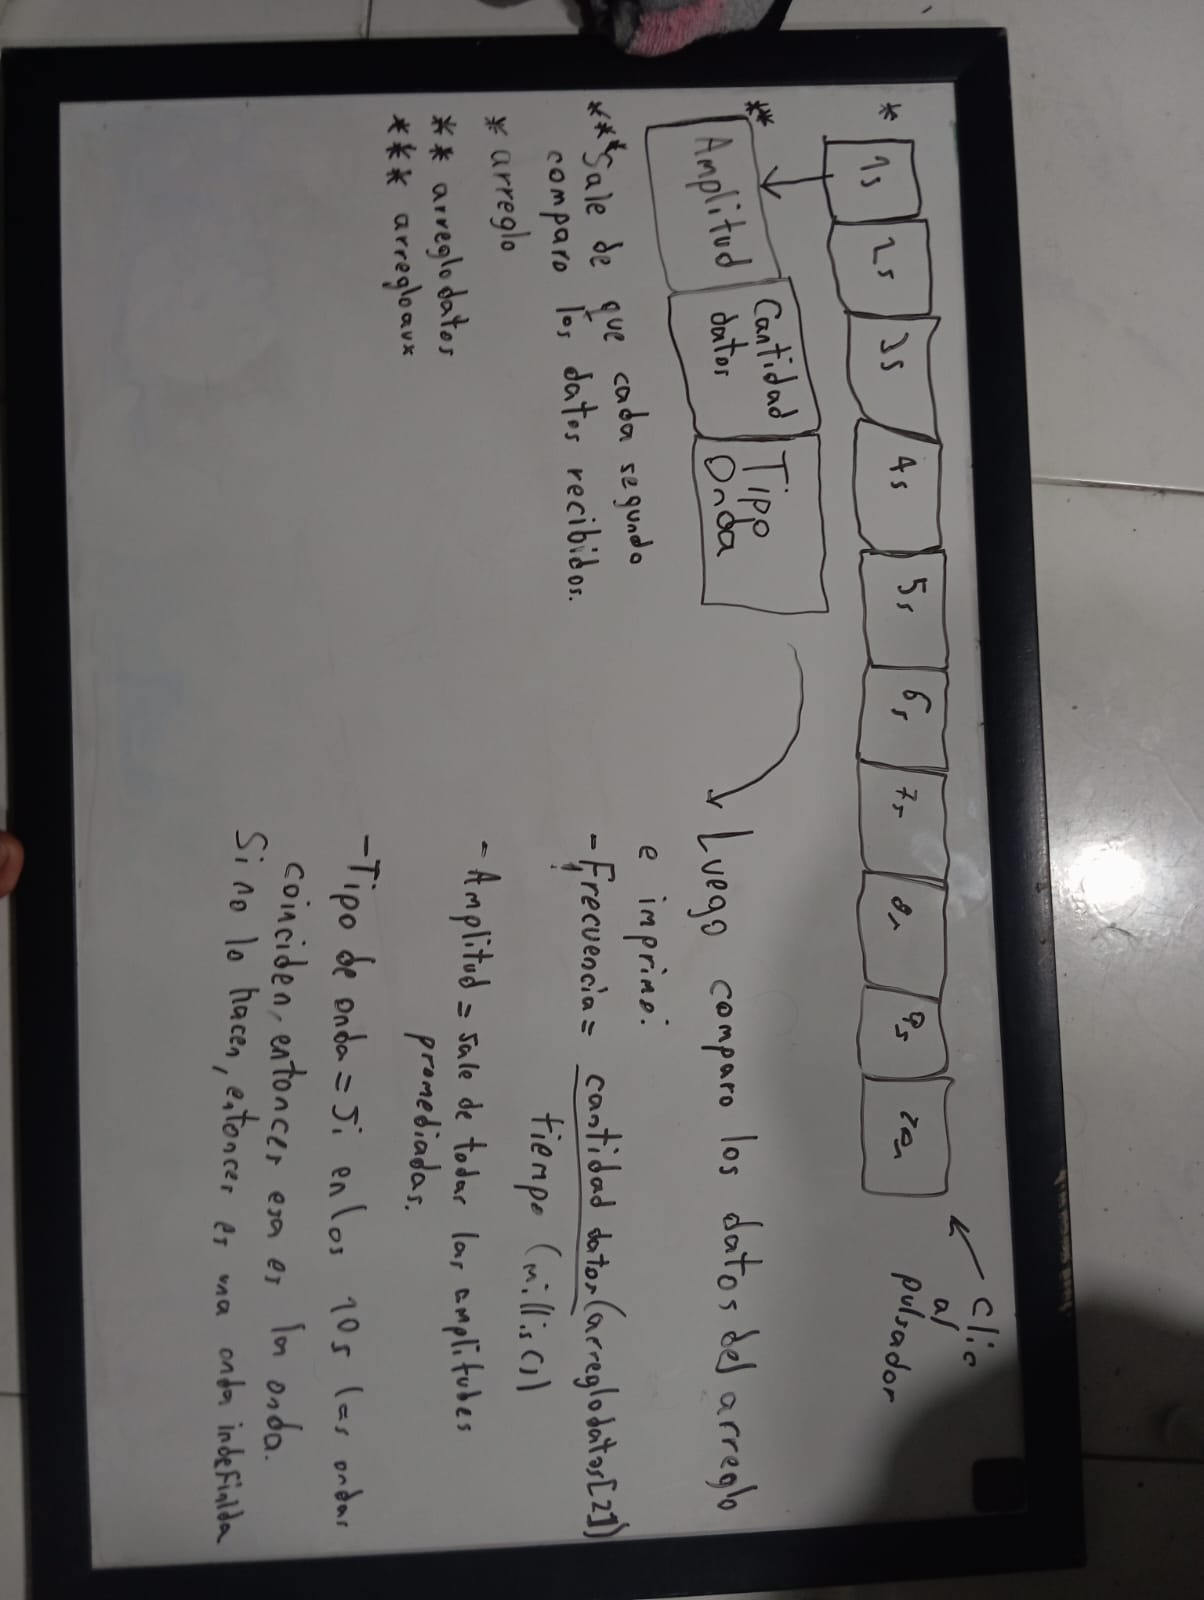 * 1s 2s 3s 4s 5s 6s 7s 8s 9s 10s
Clic
al
pulsador
** Amplitud Cantidad datos Tipo Onda
*** Sale de que cada segundo
comparo los datos recibidos.
* arreglo
** arreglodatos
*** arregloaux
Luego comparo los datos del arreglo
e imprimo:
- Frecuencia = cantidad datos (arreglodatos[2])
tiempo (millis())
- Amplitud = sale de todas las amplitudes
promediadas.
- Tipo de onda = Si en los 10s las ondas
coinciden, entonces esa es la onda.
Si no lo hacen, entonces es una onda indefinida